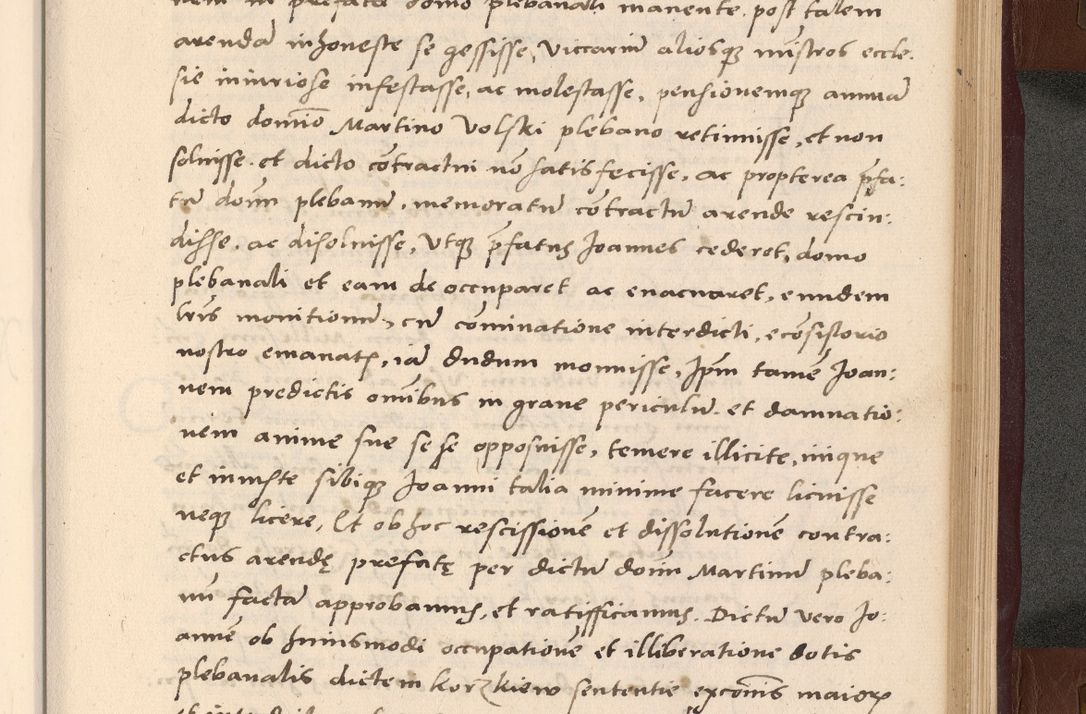 nem in prefata domo plebanali manente. post talem
arendã inhoneste se gessisse, Viccariũ aliosq; mĩstros eccle.
sie iniuriose infestasse, ac molestasse, pensionemq; annuã
dicto domĩo Martino Volski plebano retinuisse, et non
soluisse. et dicto cõtractui nõ satisfecisse, ac propterea p̃fa:
tũ dom̃ plebanũ, memoratũ cõtractũ arende rescin:
disse. ac disoluisse, Utq; p̃fatus Joannes cederet, domo
plebanali et eam de occuparet ac euacuaret, eundem
lr̃is monitionũ, cũ cõminatione interdicti, e cõsistorio
nostro emanatꝝ, iã dudum monuisse, Ip̃m tamẽ Joan:
nem predictis omĩbus in graue periculũ. et damnatio:
nem anime sue se se opposuisse, temere illicite, inique
et iniuste sibiq; Joanni talia minime facere licuisse
neq; licere, Et ob hoc rescissionẽ et dissolutionẽ contra:
ctus arendę prefatę per dictũ dom̃ Martinũ pleba:
nũ factã approbamus, et ratifficamus. Dictũ vero Jo:
annẽ ob huiusmodi occupationẽ et illiberatione dotis
plebanalis dictem Korzkiew sententie excom̃is maioris